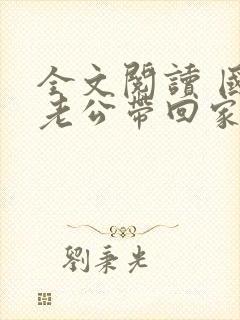 全文閱讀 國
老公帶回家
劉秉光